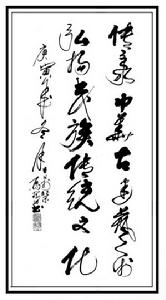 传承中华古老艺术
弘扬民族传统文化
庚寅年冬月